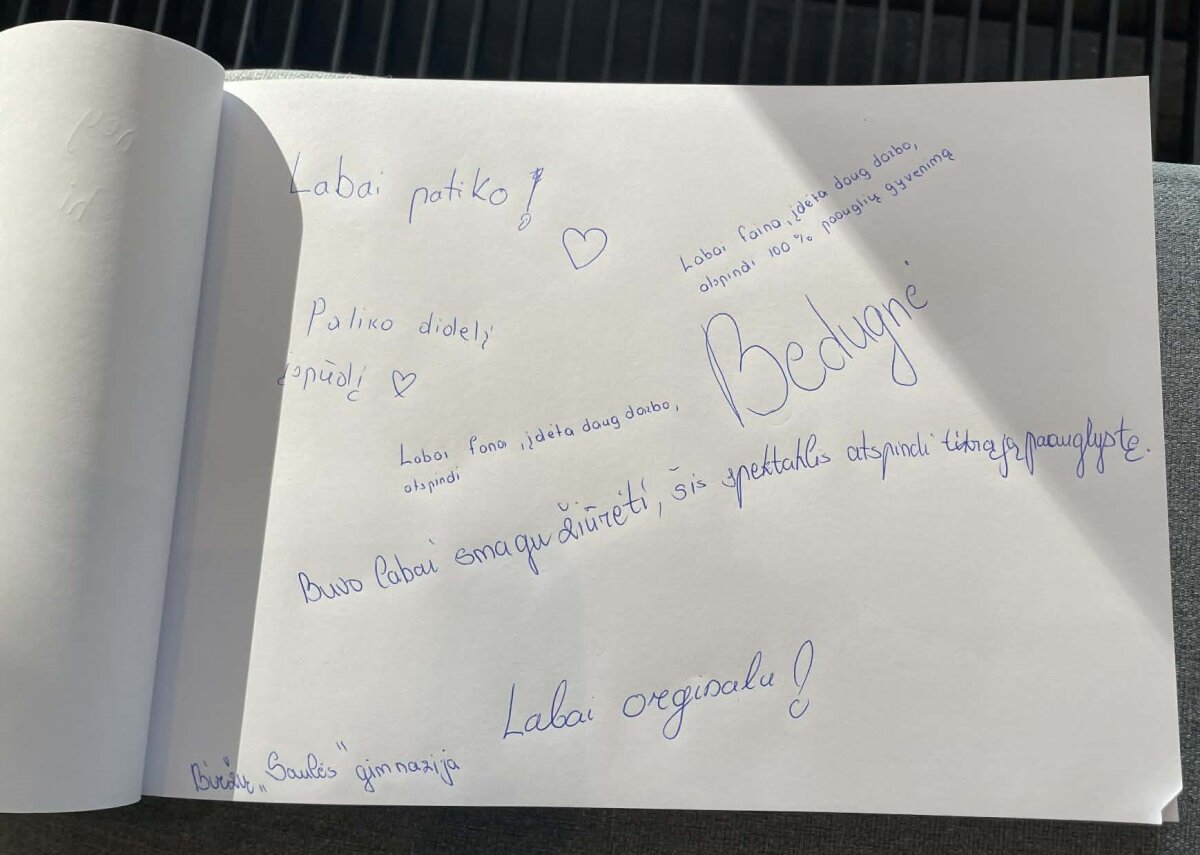 Labai patiko!
Labai faina, įdėta daug darbo,
atspindi 100% paauglių gyvenimą
Bedugnė
Patiko didelį
įspūdį
Labai fana, įdėta daug darbo,
atspindi
Buvo labai smagu žiūrėti, šis spektaklis atspindi tikrąją paauglystę.
Labai orginalu!
Biržų „Saulės" gimnazija